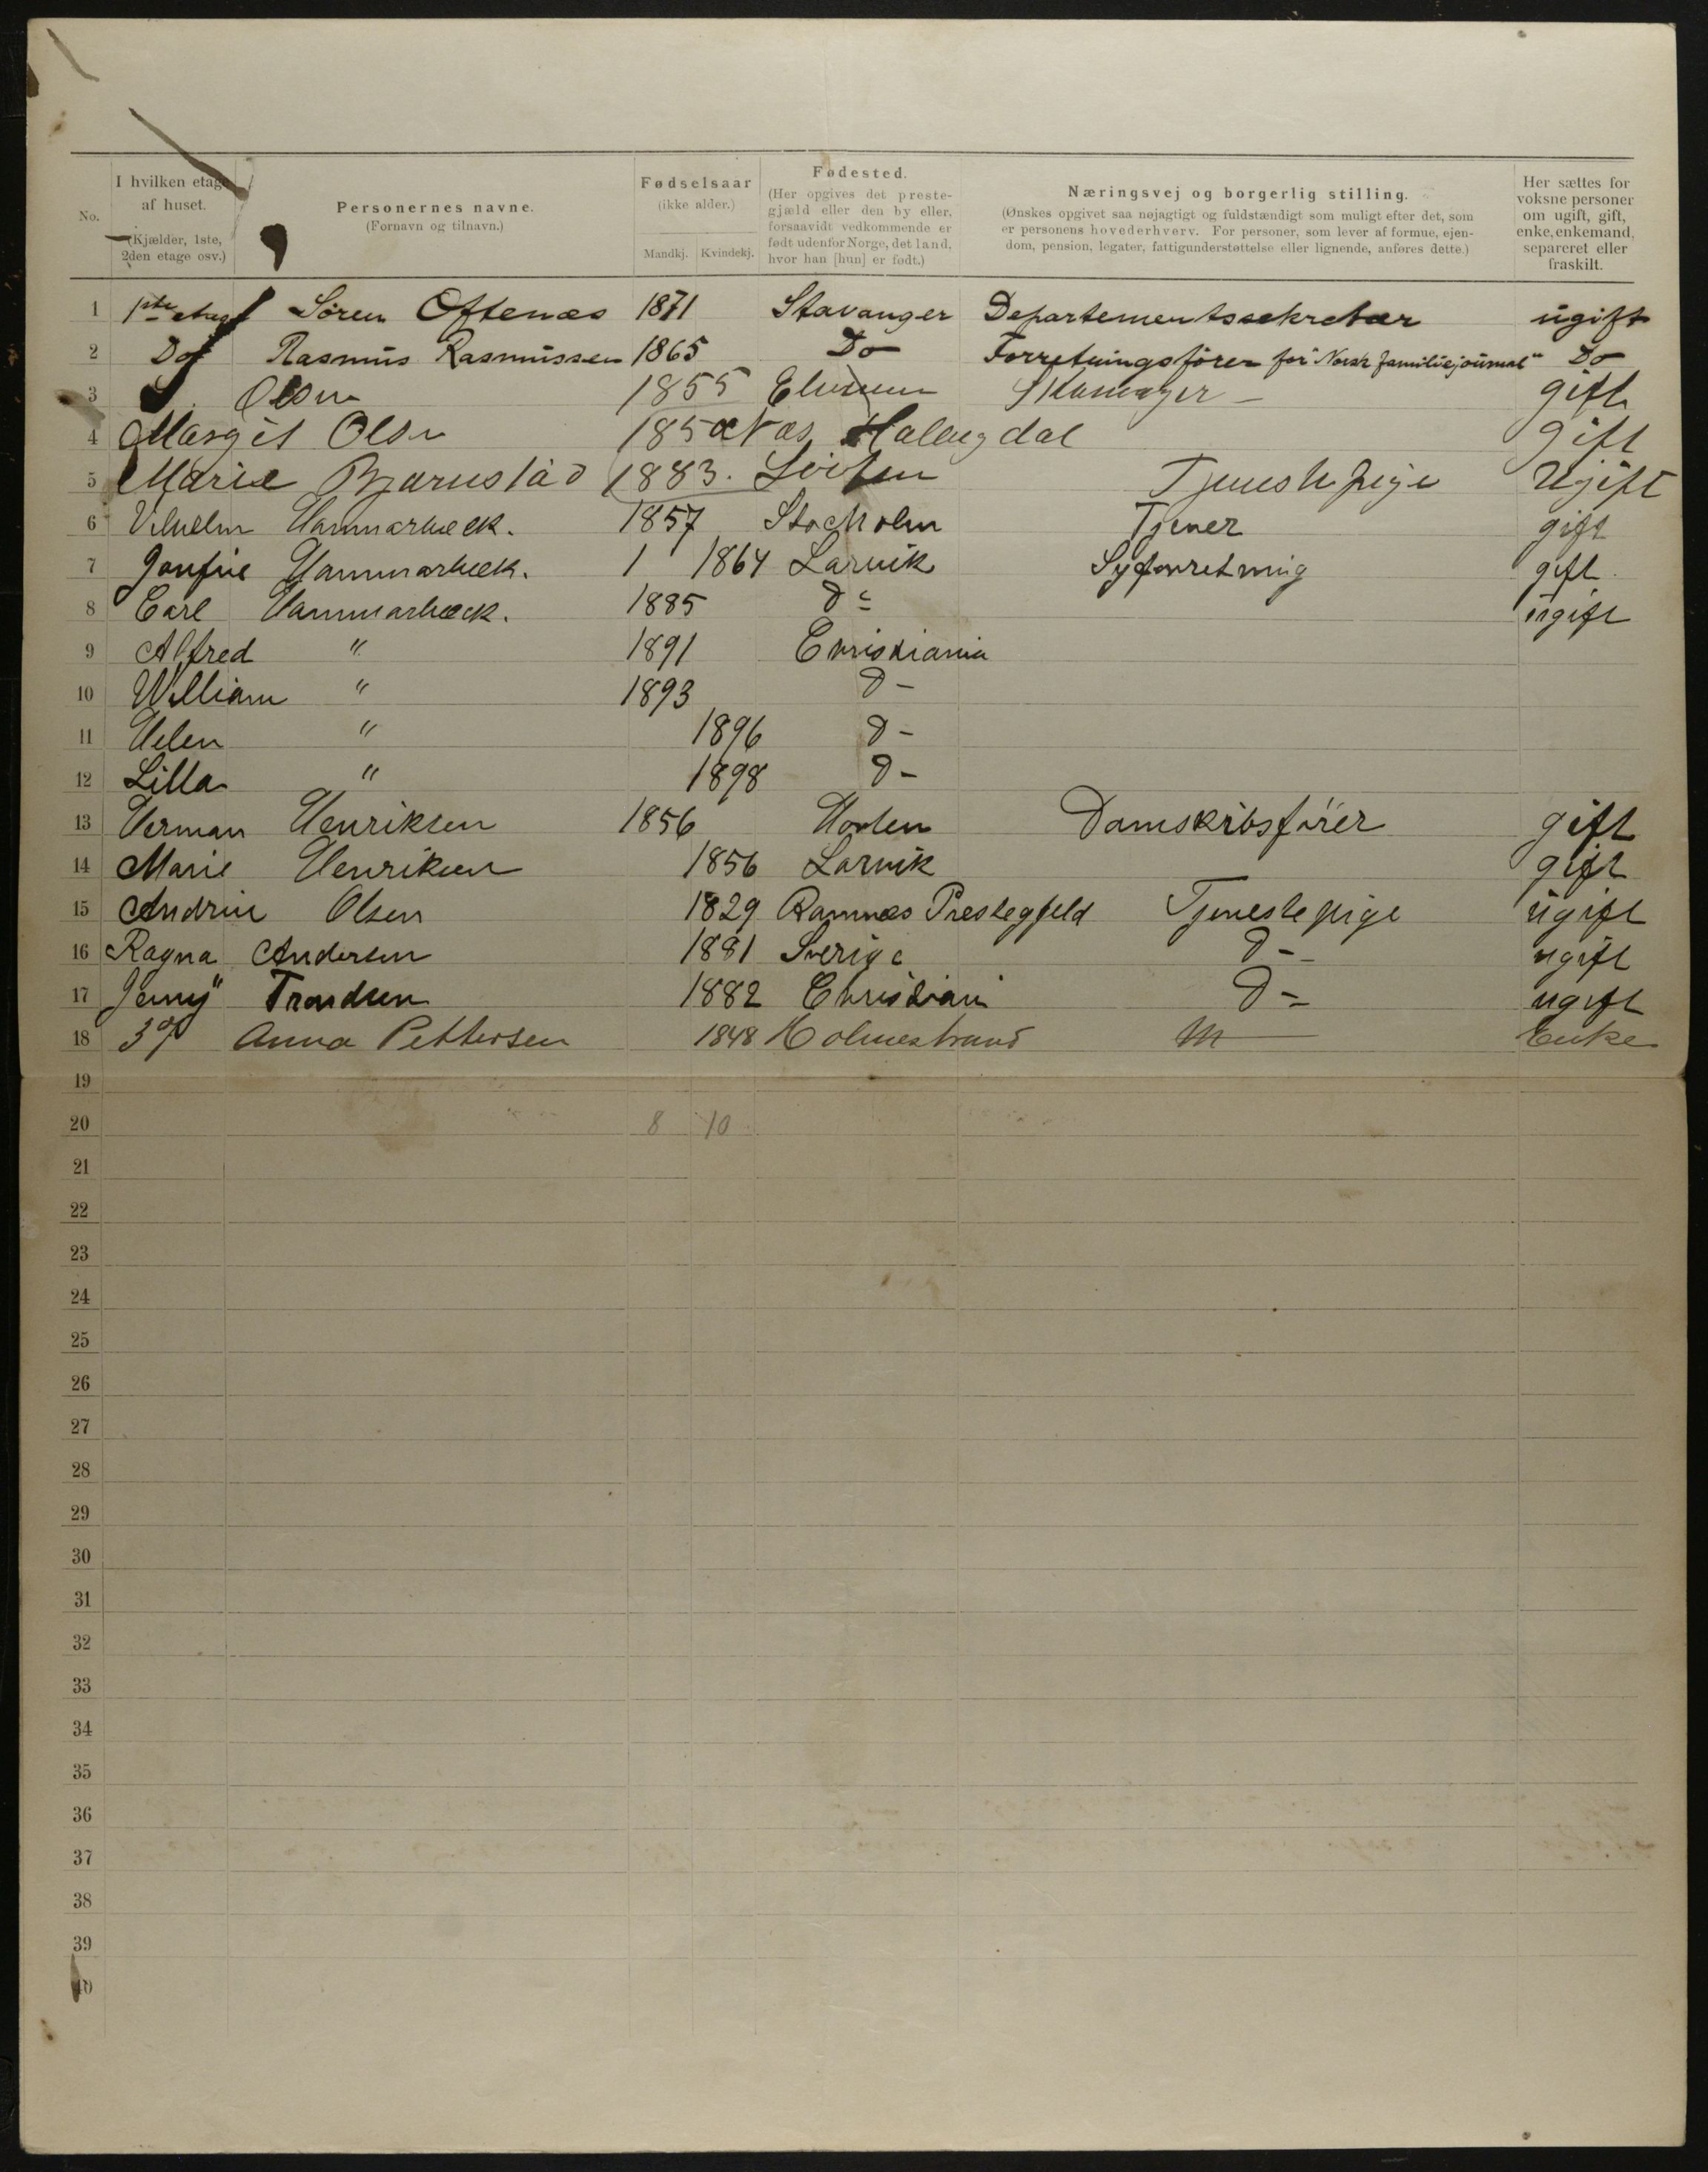 No. I hvilken etage af huset. (Kjælder, 1ste, 2den etage osv.) Personernes navne. (Fornavn og tilnavn.) Fødselsaar (ikke alder.) Mandkj. Kvindekj. Fødested. (Her opgives det prestegjæld eller den by eller, forsaavidt vedkommende er født udenfor Norge, det land, hvor han [hun] er født.) Næringsvej og borgerlig stilling. (Ønskes opgivet saa nøjagtigt og fuldstændigt som muligt efter det, som er personens hovederhverv. For personer, som lever af formue, ejendom, pension, legater, fattigunderstøttelse eller lignende, anføres dette.) Her sættes for voksne personer om ugift, gift, enke, enkemand, separeret eller fraskilt.
1 1ste etage Sören Oftenæs 1871 Stavanger Departementssekretær ugift
2 Do Rasmus Rasmussen 1865 Do Forretningsfører for "Norsk Familiejournal" Do
3 Olsen 1855 Elverum Skomager gift
4 Margit Olsen Næs Hallingdal gift
5 Marie Bjørnstad 1883. Löiten Tjenestepige Ugift
6 Vilhelm Hammarbeck. 1857 Stocholm Tjener gift
7 Hammarbeck. 1 1864 Larvik Syforretning gift.
8 Carl Hammarbeck. 1885 do ugift
9 Alfred " 1891 Christiania
10 William " 1893 d-
11 Helen " 1896 d-
12 Lilla " 1898 d-
13 Herman Henriksen 1856 Horten Damskibsförer gift
14 Marie Henriksen 1856 Larvik gift
15 Andrine Olsen 1829 Ramnæs Prestegjeld Tjenestepige ugift
16 Ragna Andersen 1881 Sverige d- ugift
17 Jenny Trondsen 1882 Christiani d- ugift
18 Anna Pettersen 1848 Holmestrand Enke
19
20 8 10
21
22
23
24
25
26
27
28
29
30
31
32
33
34
35
36
37
38
39
40